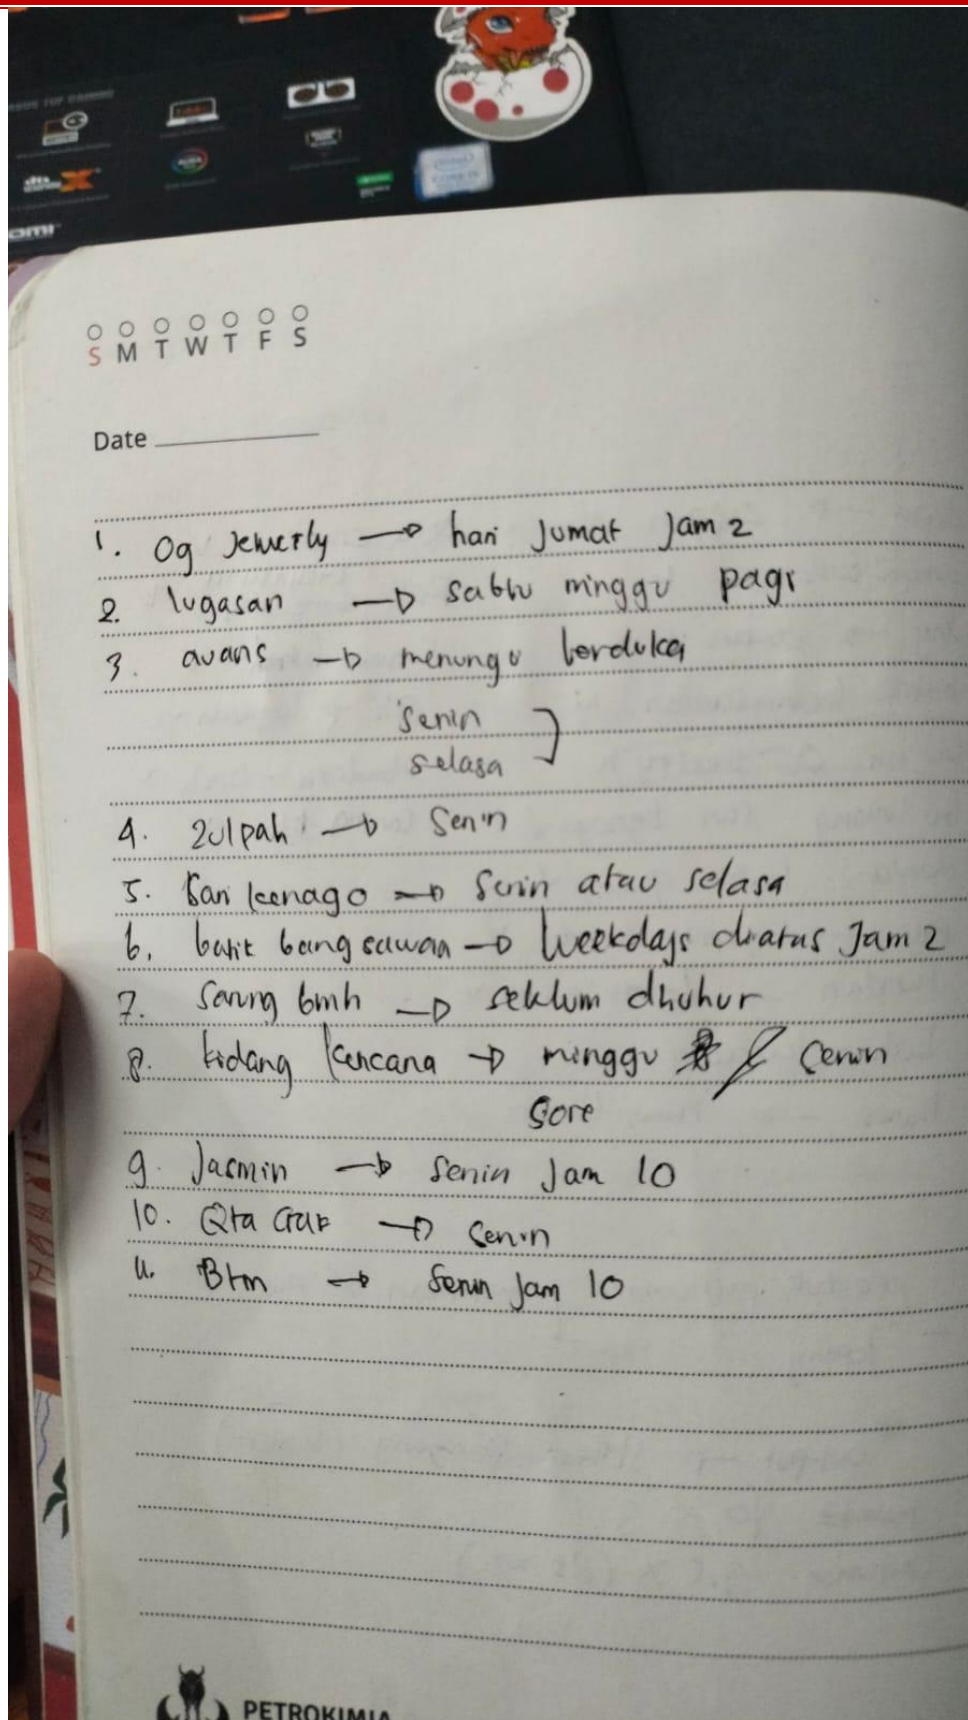 S M T W T F S
Date
1. Og Jewerly → hari Jumat Jam 2
2. lugasan → sabtu minggu pagi
3. avans → menungu berduka
Senin
selasa
4. Zulpah → Senin
5. → Senin atau selasa
6. batik bangsawan → Weekdays diatas Jam 2
7. Sarung bmh → seblum dhuhur
8. kidang kencana → minggu / Senin
Sore
9. Jasmin → Senin Jam 10
10. Qta → Senin
11. → Senin Jam 10
PETROKIMIA